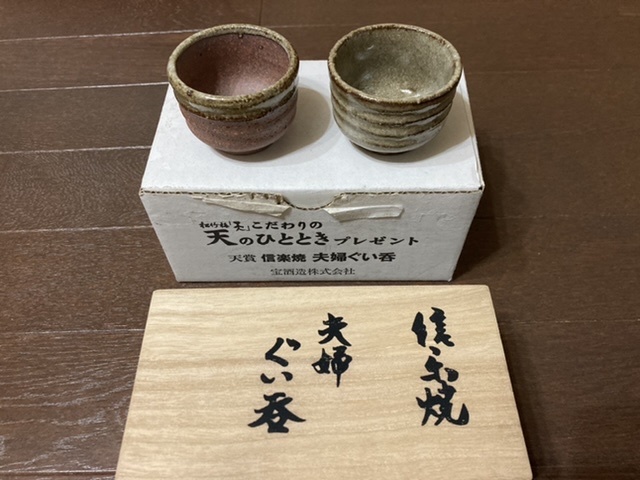 松竹梅「天」こだわりの
天のひとときプレゼント
天賞 信楽焼 夫婦ぐい呑
宝酒造株式会社
信楽焼
夫婦
ぐい呑